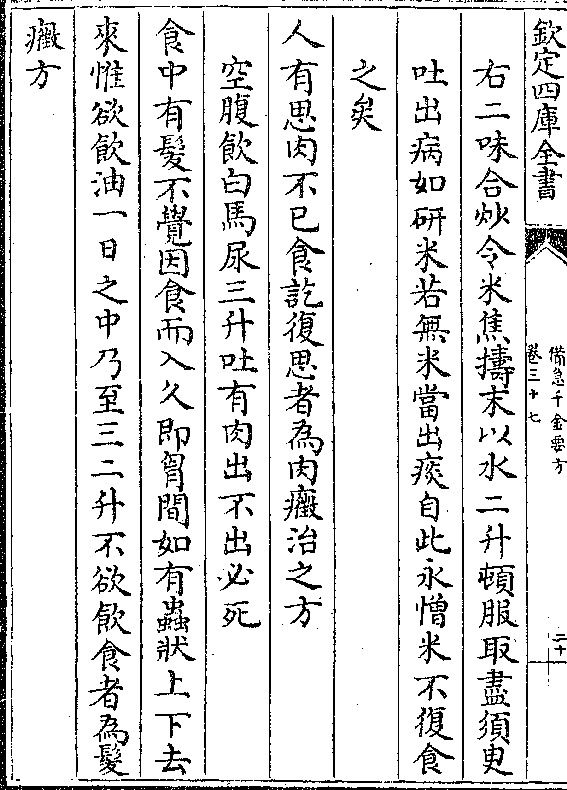 欽定四庫全書
備急千金要方
卷三十七
二十
右二味合炒令米焦擣末以水二升頓服取盡須臾
吐出病如研米若無米當出痰自此永憎米不復食
之矣
人有思肉不已食訖復思者為肉癥治之方
空腹飲白馬尿三升吐有肉出不出必死
食中有髮不覺因食而入久即胷間如有蟲狀上下去
來惟欲飲油一日之中乃至三二升不欲飲食者為髮
癥方